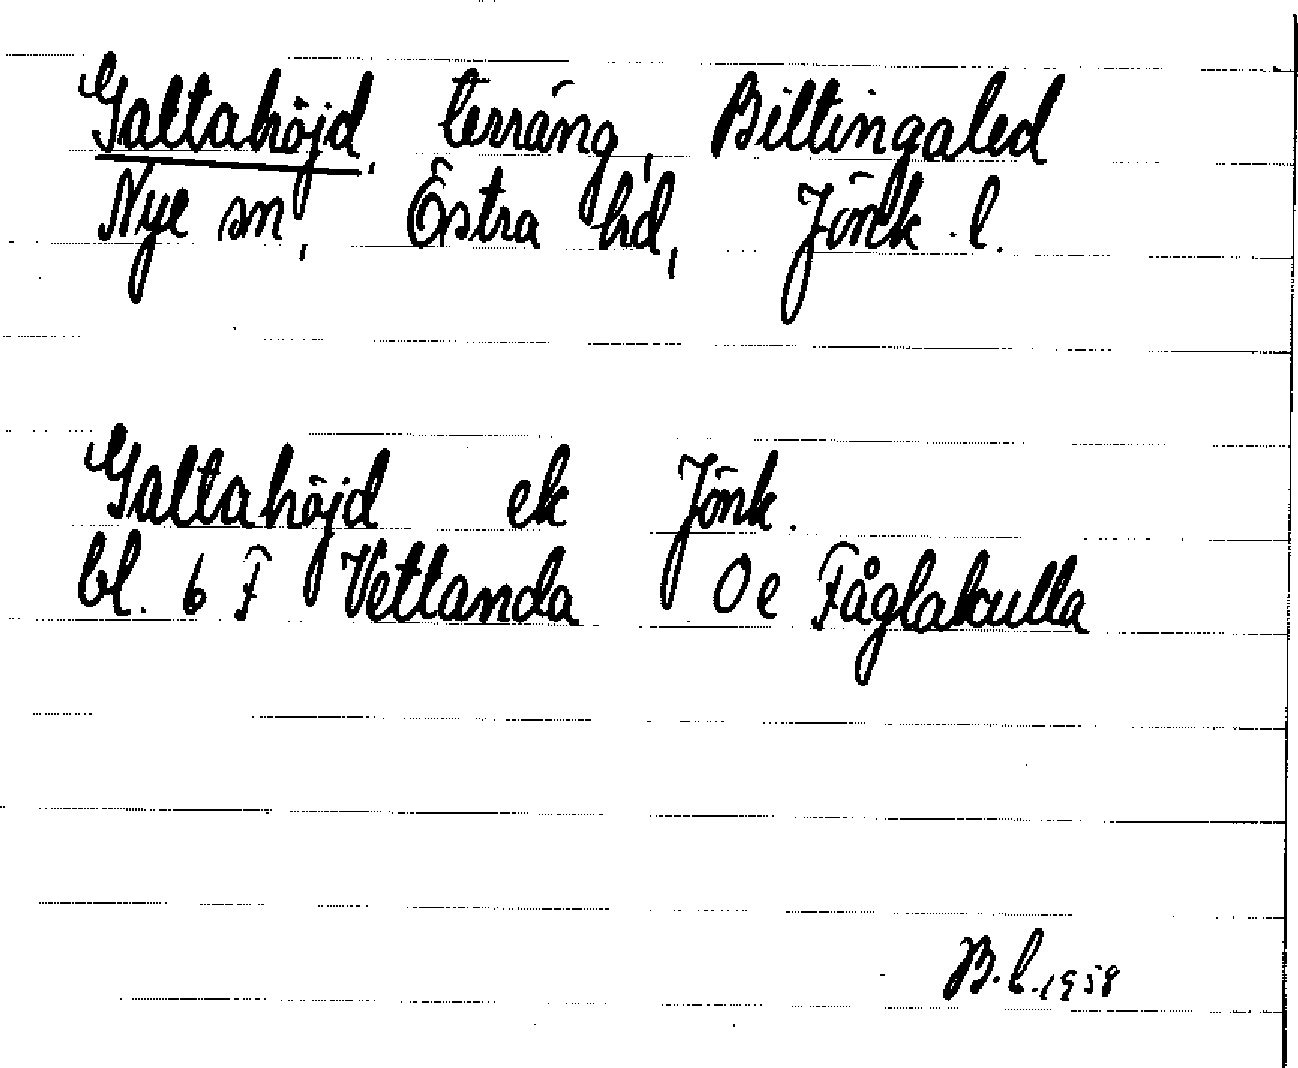 Galtahöjd, terräng, Biltingaled
Nye sn, Östra hd, Jönk. l.
Galtahöjd ek Jönk.
bl. 6 F Vetlanda 0 e Fåglakulla
B.L. 1958